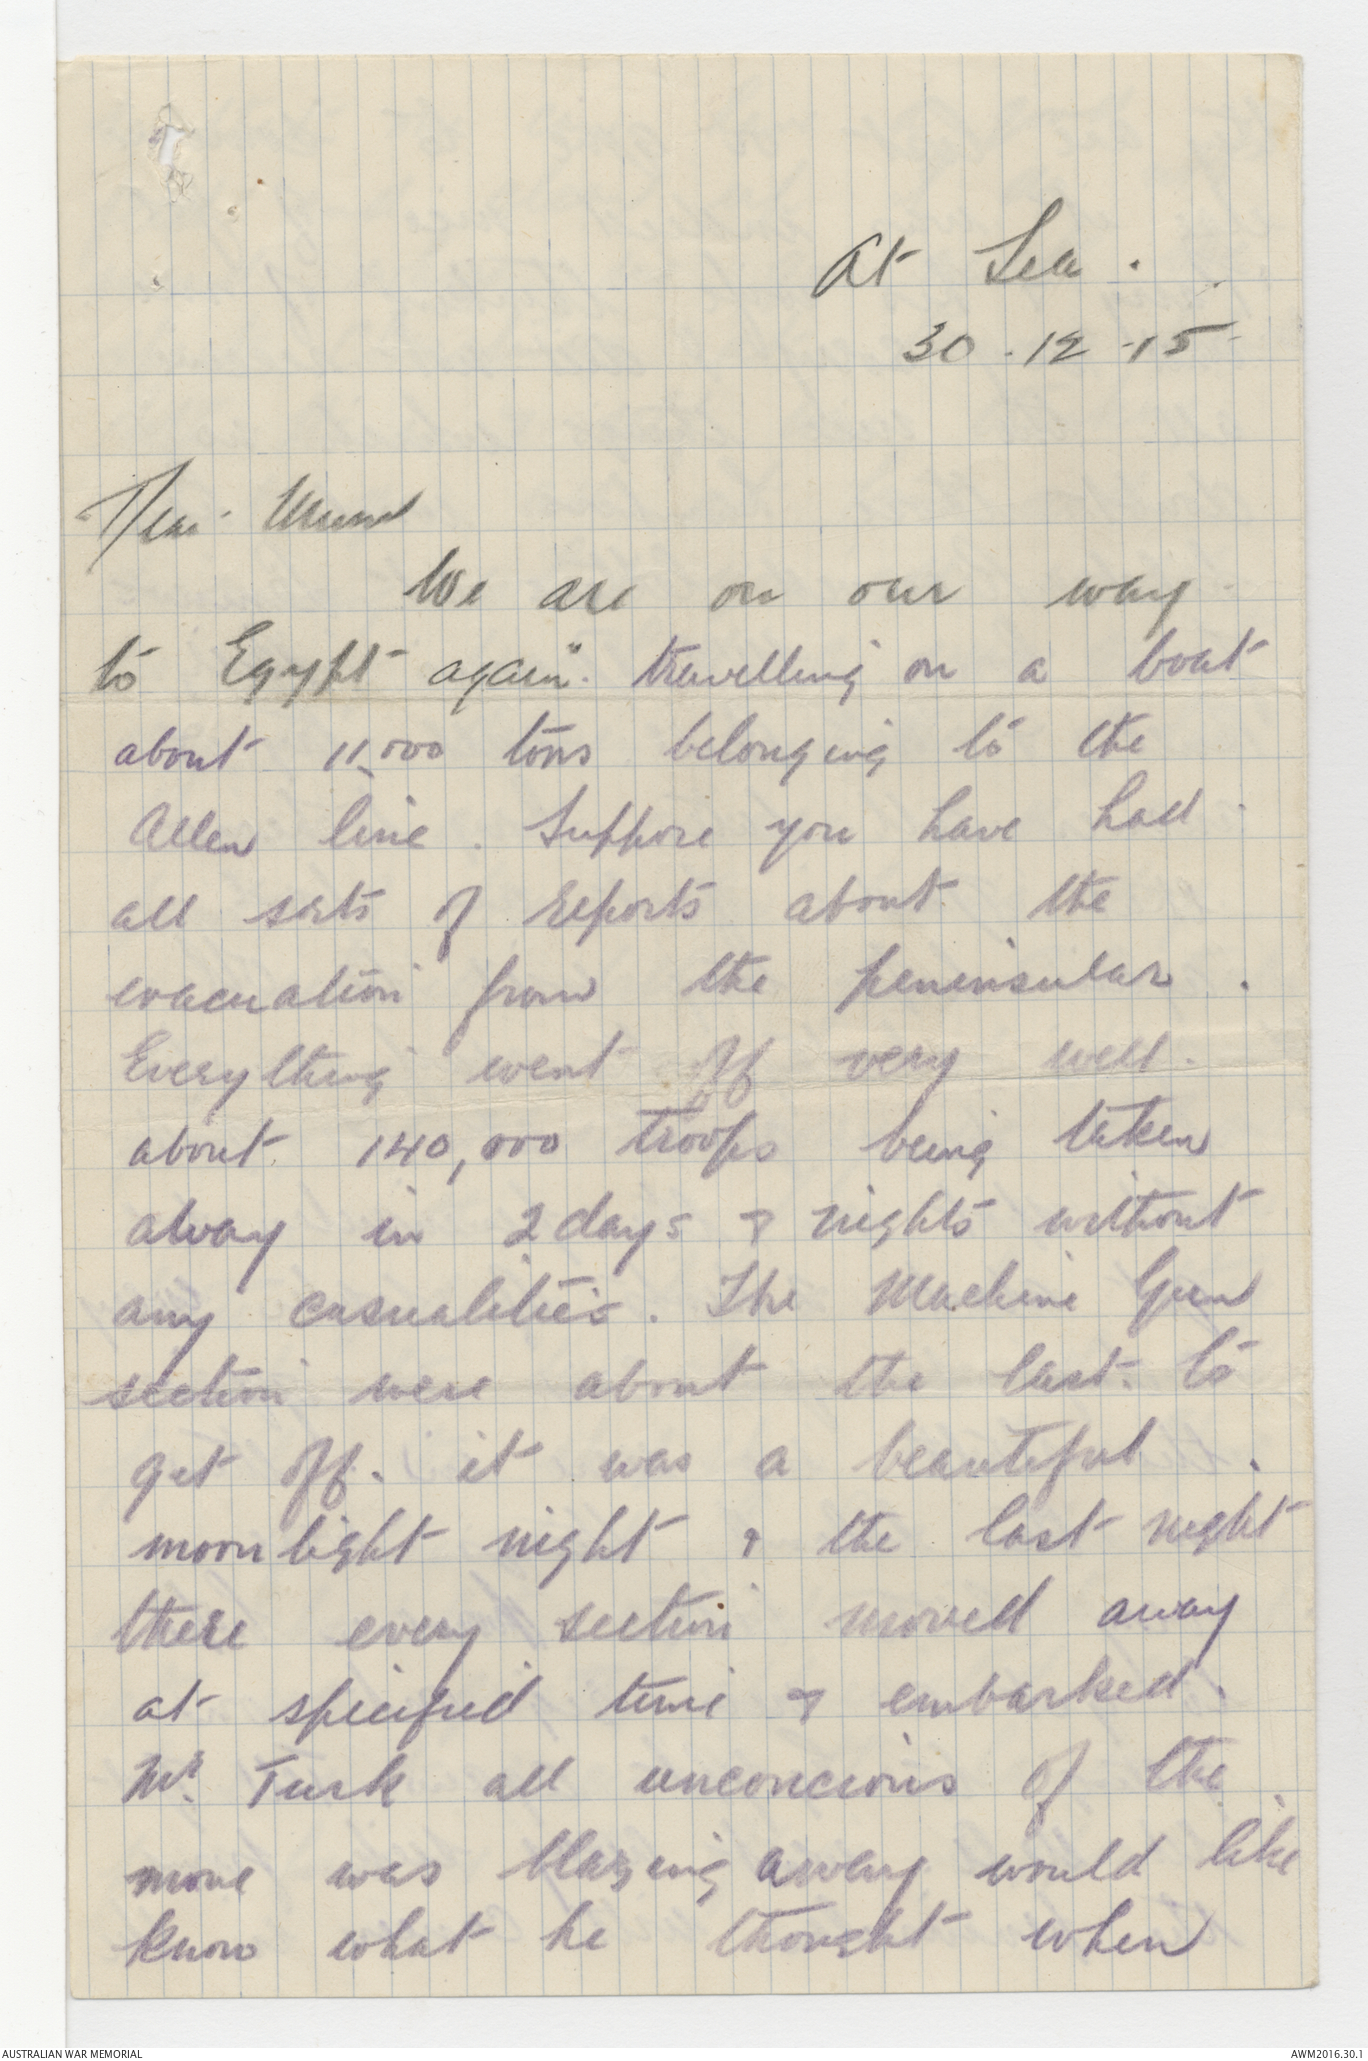 At Sea.
30-12-15
Dear Mum
We are on our way
to Egypt again. travelling on a boat
about 11,000 tons belonging to the
Allen line. Suppose you have had
all sorts of reports about the
evacuation from the peninsular.
Everything went off very well.
about 140,000 troops being taken
away in 2 days & nights without
any casualities. The Machine Gun
section were about the last to
get off. it was a beautiful
moonlight night & the last night
there every section moved away
at specified time & embarked.
Mr. Turk all unconcious of the
move was blazing away would like
know what he thought when
AUSTRALIAN WAR MEMORIAL
AWM2016.30.1